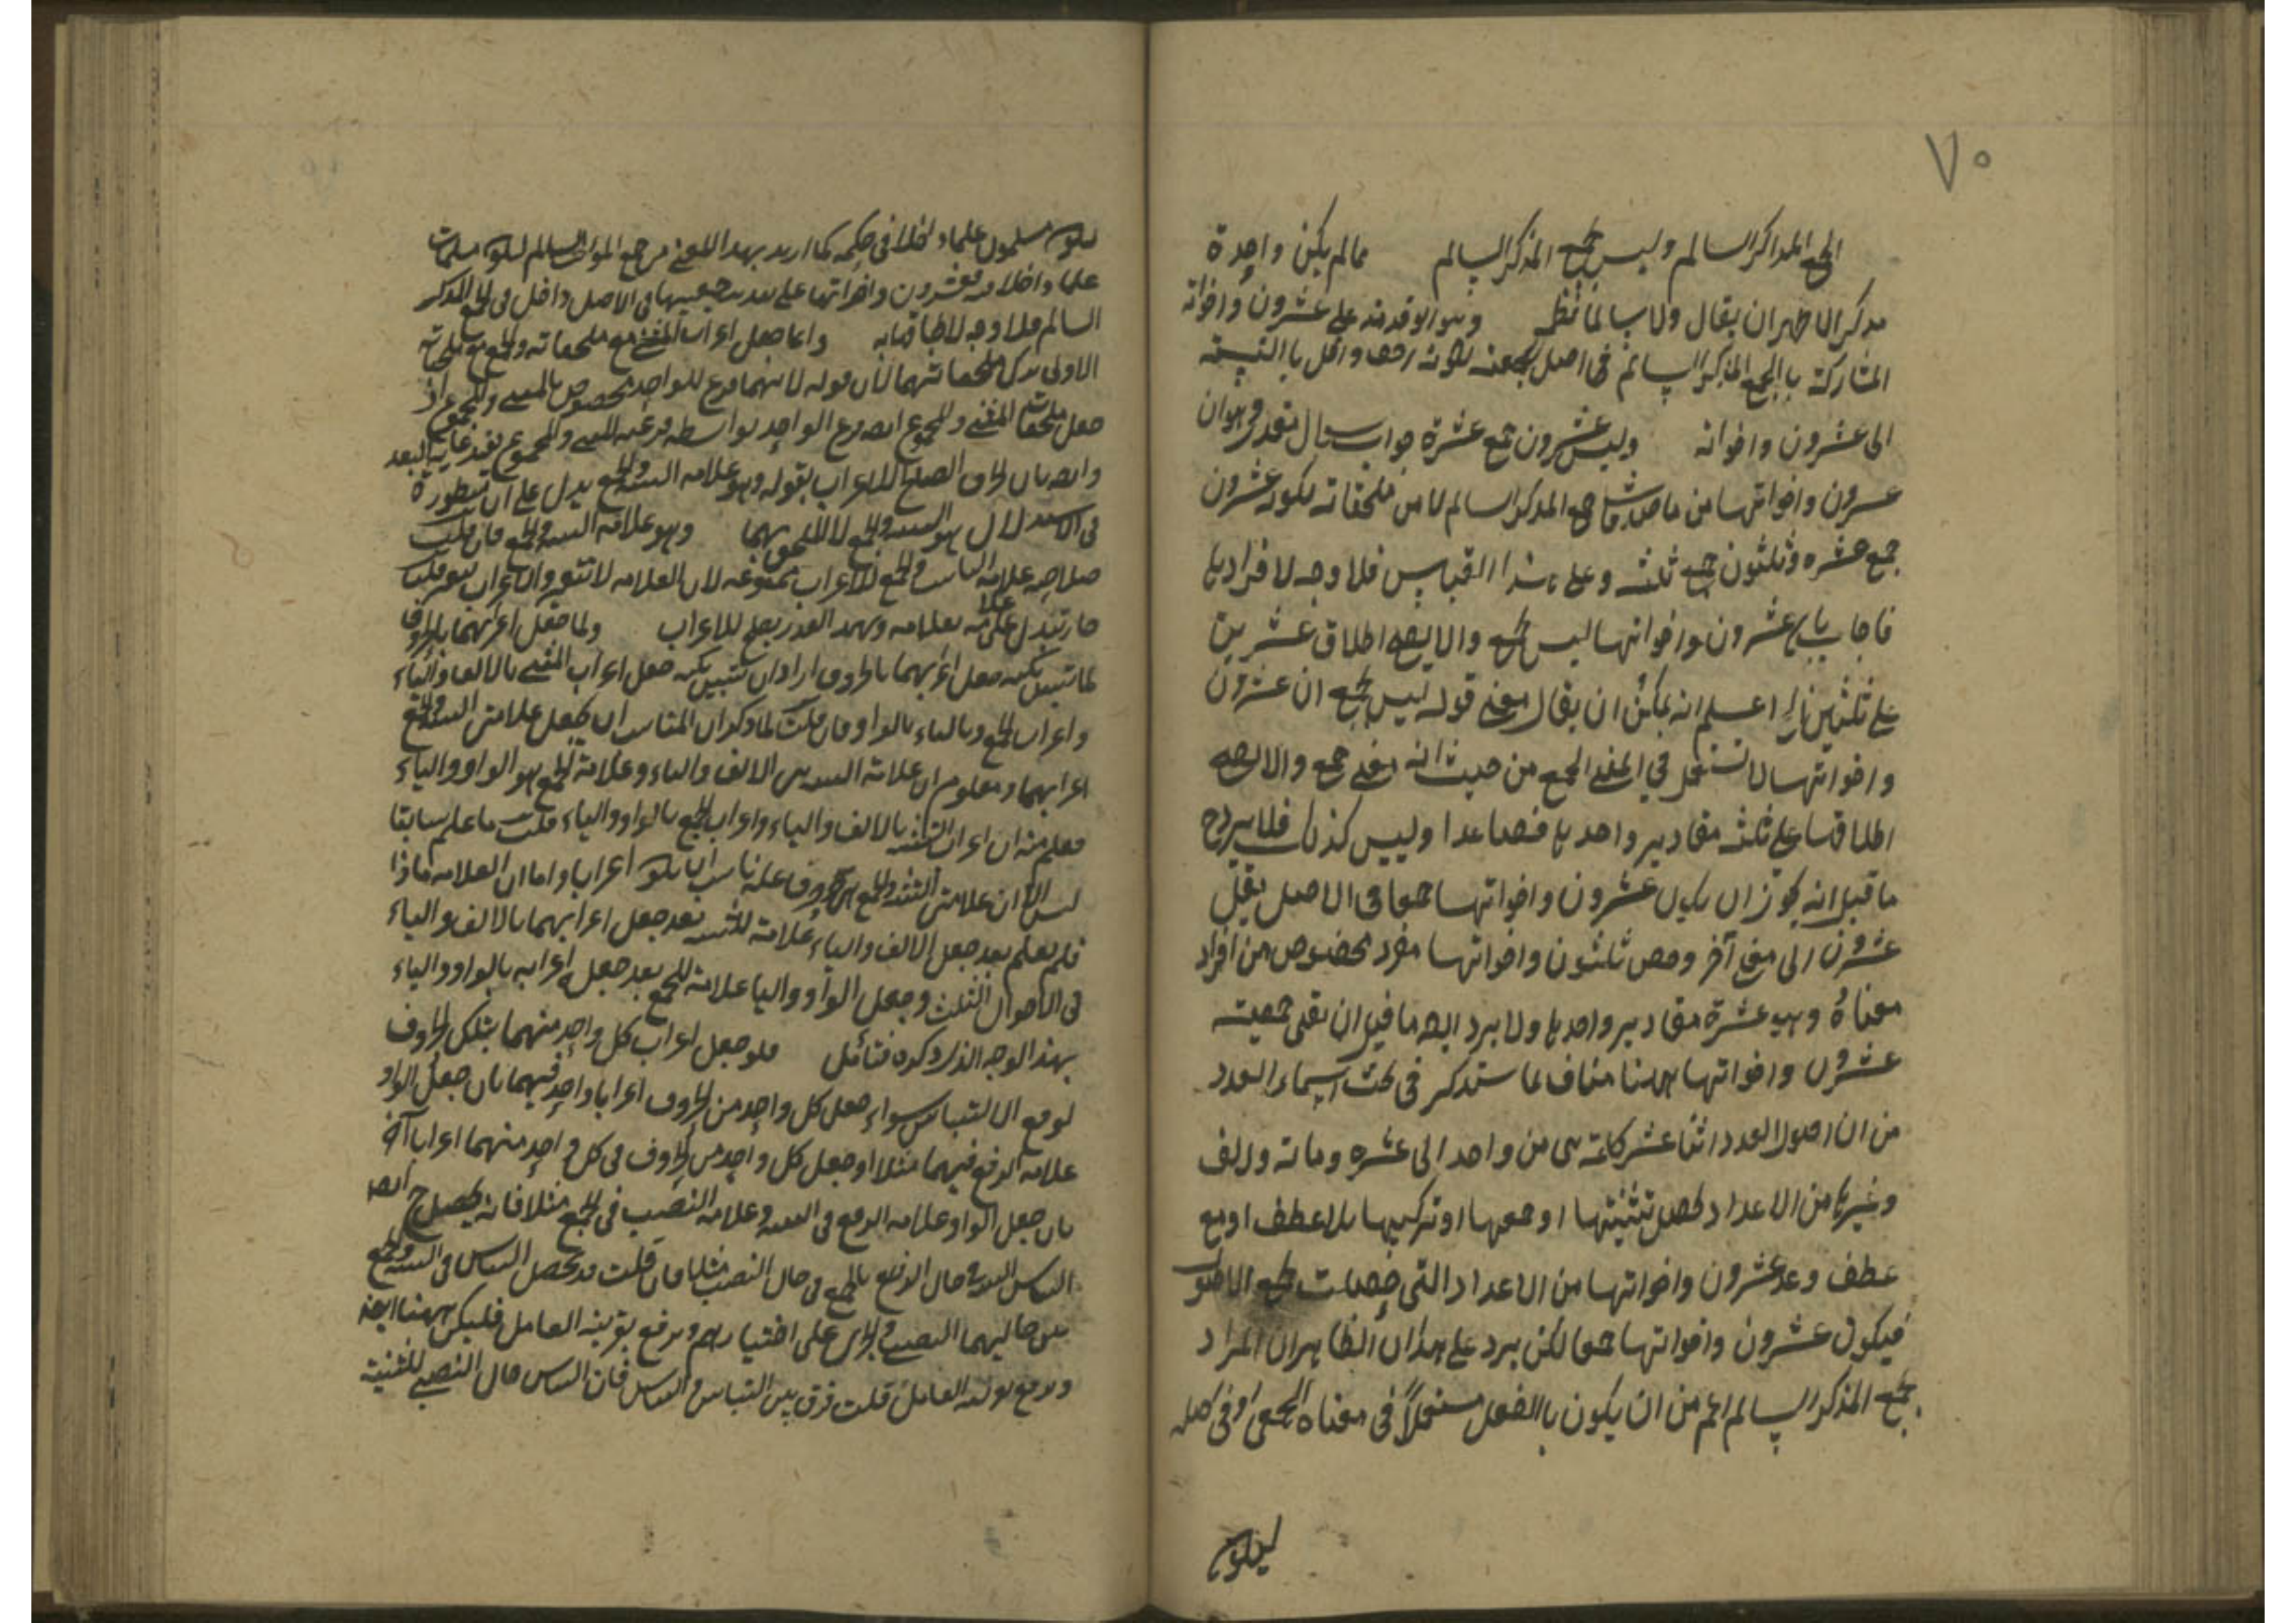 ٧٠
الجمع المذكر السالم وليس جمع المذكر السالم مما لم يكن واحدة
مذكر الا ظهر ان يقال ولا سالما نظر وهو انه قدمه على عشرون واخواته
المشاركة بالجمع المذكر السالم في اصل الجمعية لكونه اخف واقل بالنسبة
الى عشرون واخواته وليس عشرون جمع عشرة جواب سؤال مقدر وهو ان
عشرون واخواتها من جمع المذكر السالم لا من ملحقاته لكون عشرون
جمع عشره وثلثون جمع ثلثه وعلى هذا القياس فلا وجه لافرادها
فاجاب بان عشرون واخواتها ليس بجمع والا يصح اطلاق عشرين
على ثلثين اعلم انه يمكن ان يقال معنى قوله ليس بجمع ان عشرون
واخواتها لا تستعمل في المعنى الجمع من حيث انه معنى جمع والا لصح
اطلاقها على ثلثة مقادير واحدها فصاعدا وليس كذلك فلا يرد ح
ما قيل انه يجوز ان يكون عشرون واخواتها جمعا في الاصل نقل
عشرون الى معنى آخر وخص ثلثون واخواتها مفرد مخصوص من افراد
معناه وهي عشرة مقادير واحدها ولا يرد ايضا ما قيل ان نفى جمعيته
عشرون واخواتها ههنا مناف لما ستذكر في بحث اسماء العدد
من ان اصول العدد اثنا عشر كلمة هى من واحد الى عشره ومائة والف
وغيرها من الاعداد تحصل بتثنيتها او جمعها او تركيبها بلا عطف او مع
عطف وعد عشرون واخواتها من الاعداد التى حصلت بجمع الاصول
فيكون عشرون واخواتها جمعا لكن يرد على هذا ان الظاهر ان المراد
بجمع المذكر السالم اعم من ان يكون بالفعل مستعملاً في معناه الجمعى او في اصله
ليكون
ليكون مسلمون علما داخلا في حكمه كما اريد بهذا المعنى من جمع المونث السالم ليكون مسلمات
علما داخلا فيه فعشرون واخواتها على تقدير جمعيتها في الاصل داخل في الجمع المذكر
السالم فلا وجه لالحاقها به وانما جعل اعراب المثنى مع ملحقاته والجمع مع ملحقاته
الاولى ترك ملحقاتهما لان قوله لانهما فرع للواحد مخصوص بالمثنى والمجموع اذ
جعل ملحقات المثنى والمجموع ايضا فرع الواحد بواسطة فرعية المثنى والمجموع يفيد غاية البعد
وايضا بيان الصلح للاعراب بقوله وهو علامة التثنية والجمع يدل على ان منظوره
في الاستدلال هو التثنية والجمع لا الملحق بهما وهو علامة التثنية والجمع فان قلت
صلاحية علامة التثنية والجمع للاعراب ممنوعة لان العلامة لا تتغير والاعراب يتغير قلنا
جاز تبدل علامة بعلامة وبهذا القدر يصلح للاعراب ولما جعل اعرابهما بالحروف
لما تبين نكتة جعل اعرابهما بالحروف اراد ان تتبين نكتة جعل اعراب المثنى بالالف والياء
واعراب الجمع وبالياء بالواو فان قلت لما ذكر ان المناسب ان يجعل علامتى التثنية والجمع
اعرابهما ومعلوم ان علامة التثنية هى الالف والياء وعلامة الجمع هو الواو والياء
فعلم منه ان اعراب التثنية بالالف والياء واعراب الجمع بالواو والياء قلت ما علم سابقا
ليس الا ان علامتى التثنية والجمع الحروف ناسب ان يكون اعرابا واما ان العلامة ماذا
فلم يعلم بعد جعل الالف والياء علامة للتثنية بعد جعل اعرابهما بالالف والياء
في الاحوال الثلث وجعل الواو والياء علامة للجمع بعد جعل اعرابه بالواو والياء
بهذا الوجه الذى ذكره فتأمل فلو جعل اعراب كل واحد منهما بتلك الحروف
لوقع الالتباس سواء جعل كل واحد من الحروف اعرابا واحد فيهما بان جعل الواو
علامة الرفع فيهما مثلا او جعل كل واحد من الحروف في كل واحد منهما اعرابا آخر
بان جعل الواو علامة الرفع في التثنية وعلامة النصب في الجمع مثلا فانه يحصل ح ايضا
التباس التثنية في حال الرفع بالجمع في حال النصب مثلا فان قلت قد يحصل التباس في التثنية والجمع
بين حاليهما النصب والجر على اختيارهم ويرفع بقرينة العامل فليكن ههنا ايضا
ويرفع بقرينة العامل قلت فرق بين التباس والتباس فان التباس حال النصب للتثنية